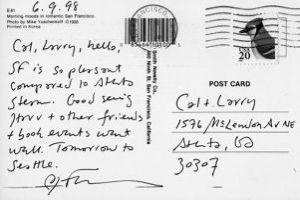 E41
6.9.98
Morning moods in romantic San Francisco.
Photo by Mike Yuschenkoff ©1988
Printed in Korea
Cat, Larry, hello,
SF is so pleasant
compared to Atlanta
steam. Good seeing
+ other friends
+ book events went
well. Tomorrow to
Seattle.
Smith Novelty Co.
San Francisco, California
USA
20
POST CARD
Cat + Larry
1576 McLendon Av NE
Atlanta, GA
30307